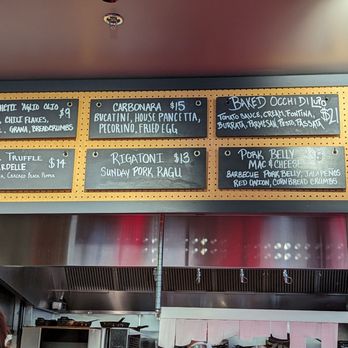 GHETTI AGLIO OLIO
$9
CHILI FLAKES,
GRANA, BREADCRUMBS
CARBONARA $15
BUCATINI, HOUSE PANCETTA,
PECORINO, FRIED EGG
BAKED OCCHI DI LUPO
TOMATO SAUCE, CREAM, FONTINA, $21
BURRATA, PARMESAN, PESTO, PASSATA
TRUFFLE
DELLE $14
CRACKED BLACK PEPPER
RIGATONI $13
SUNDAY PORK RAGU
PORK BELLY
MAC & CHEESE
BARBECUE PORK BELLY, JALAPEÑOS
RED ONION, CORN BREAD CRUMBS